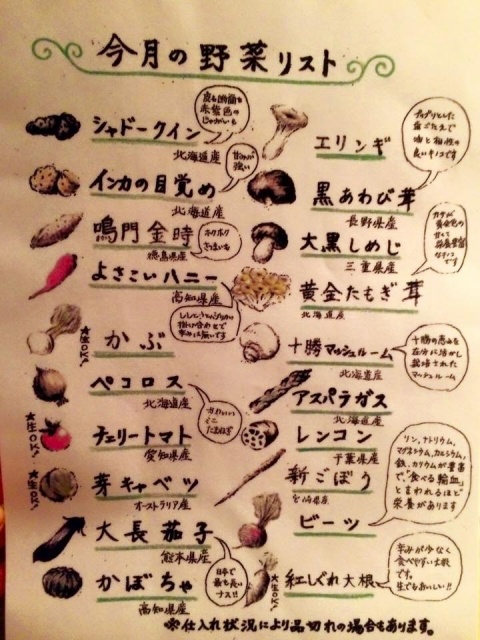 今月の野菜リスト
シャドークイン
北海道産
皮も断面も
赤紫色の
じゃがいも
インカの目覚め
北海道産
甘みが
強い
鳴門金時
徳島県産
ホクホク
さつまいも
よさこいハニー
高知県産
ししとうとハバネロを
掛け合わせて
辛みは無いです
かぶ
★生OK!
ペコロス
北海道産
かわいい
ミニ
たまねぎ
チェリートマト
愛知県産
★生OK!
芽キャベツ
オーストラリア産
★生OK!
大長茄子
熊本県産
日本で
最も長い
ナス!!
かぼちゃ
高知県産
エリンギ
プリプリとした
歯ごたえで
油と相性の
良いキノコです
黒あわび茸
長野県産
大黒しめじ
三重県産
黄金たもぎ茸
北海道産
カサが
黄金色の
甘くて
栄養豊富
なキノコ
です
十勝マッシュルーム
北海道産
十勝の恵みを
存分に活かし
栽培された
マッシュルーム
アスパラガス
北海道産
レンコン
千葉県産
新ごぼう
宮崎県産
ビーツ
リン、ナトリウム、
マグネシウム、カルシウム、
鉄、カリウムが豊富
で、"食べる輸血"
と言われるほど
栄養があります
紅しぐれ大根
★生OK!
辛みが少なく
食べやすい大根
です。
生でもおいしい!!
※仕入れ状況により品切れの場合もあります。